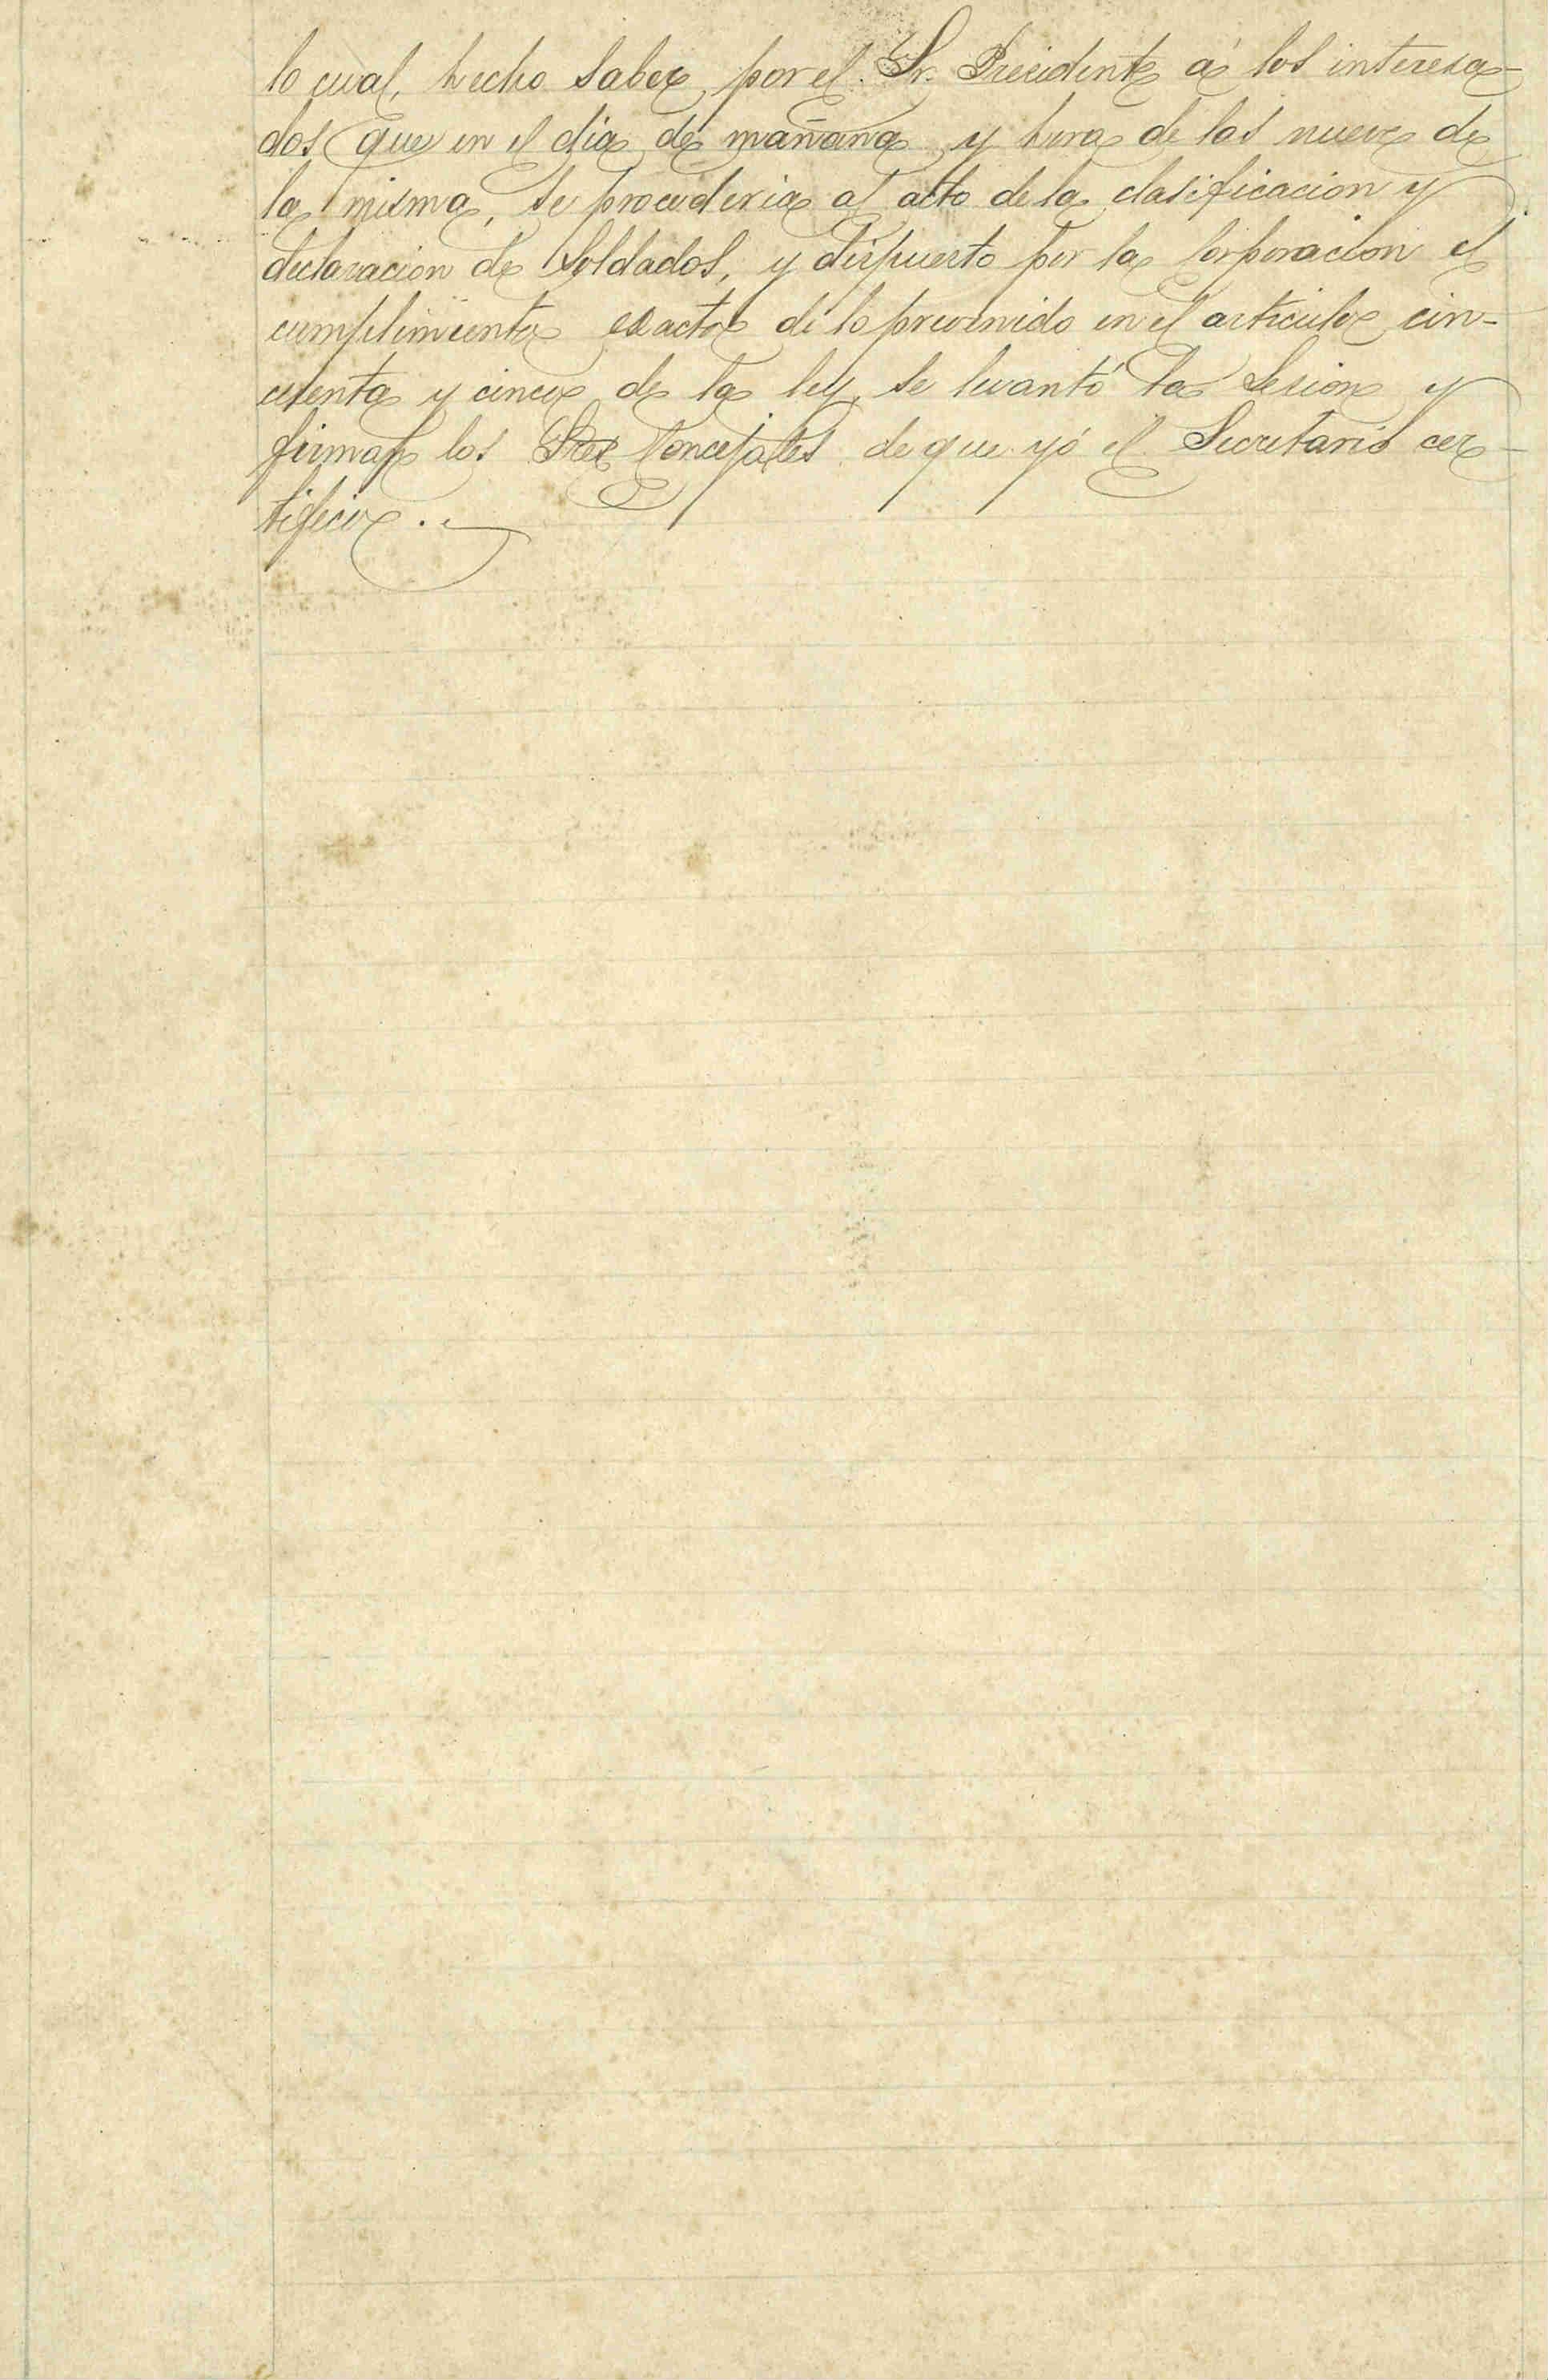 lo cual, hecho saber por el Sr. Presidente á los interesa-
dos que en el día de mañana y hora de las nueve de
la misma, se procederia al acto de la clasificacion y
declaracion de Soldados, y dispuesto por la Corporacion el
cumplimiento exacto de lo prevenido en el articulo cin-
cuenta y cinco de la ley, se levantó la Sesion y
firman los Sres Concejales de que yó el Secretario cer-
tifico.